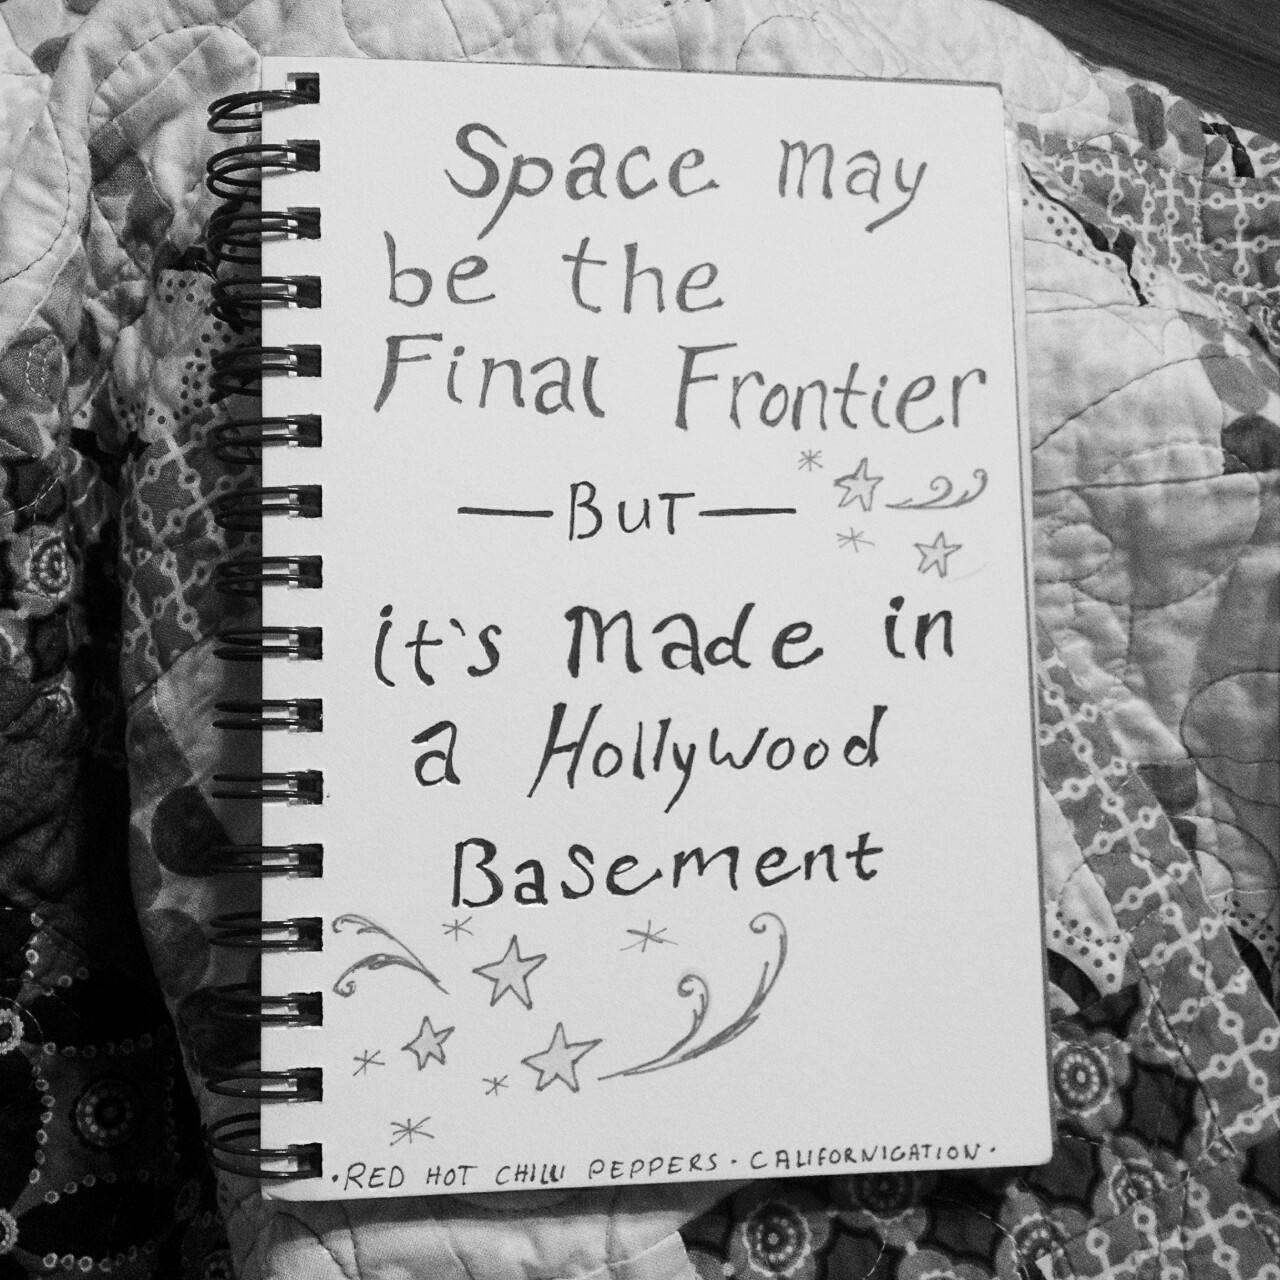 Space may
be the
Final Frontier
—BUT—
it's made in
a Hollywood
Basement
·RED HOT CHILI PEPPERS · CALIFORNIGATION·